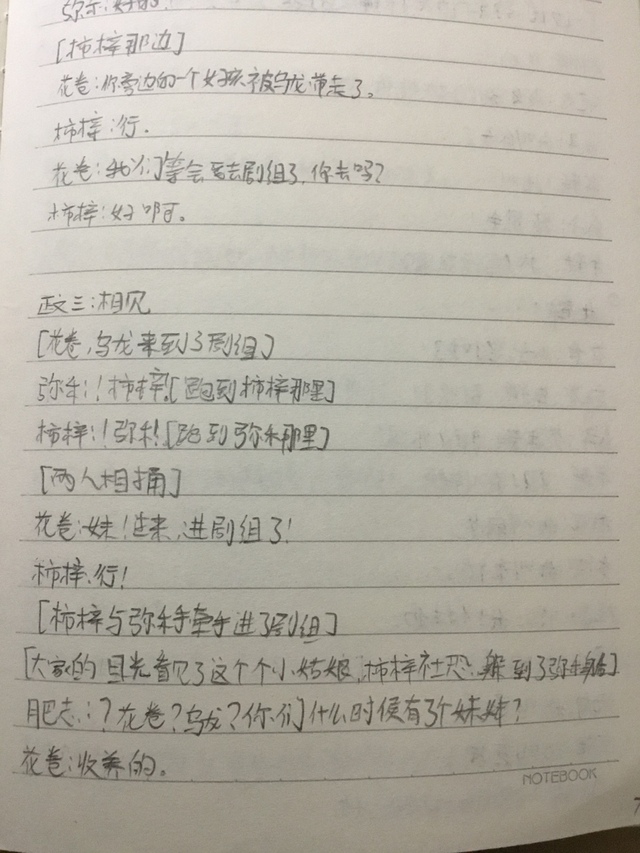 弥禾:好的.
[柿梓那边]
花卷:你旁边的一个女孩被乌龙带走了。
柿梓:行.
花卷:我们等会要去剧组了,你去吗?
柿梓:好啊。
政三:相见
[花卷,乌龙来到了剧组]
弥禾:!柿梓![跑到柿梓那里]
柿梓:!弥禾![跑到弥禾那里]
[两人相拥]
花卷:妹!过来,进剧组了!
柿梓:行!
[柿梓与弥禾手牵手进了剧组]
[大家的目光看见了这个个小姑娘,柿梓社恐,躲到了弥禾身后]
肥志:?花卷?乌龙?你们什么时候有了个妹妹?
花卷:收养的。
NOTEBOOK
7